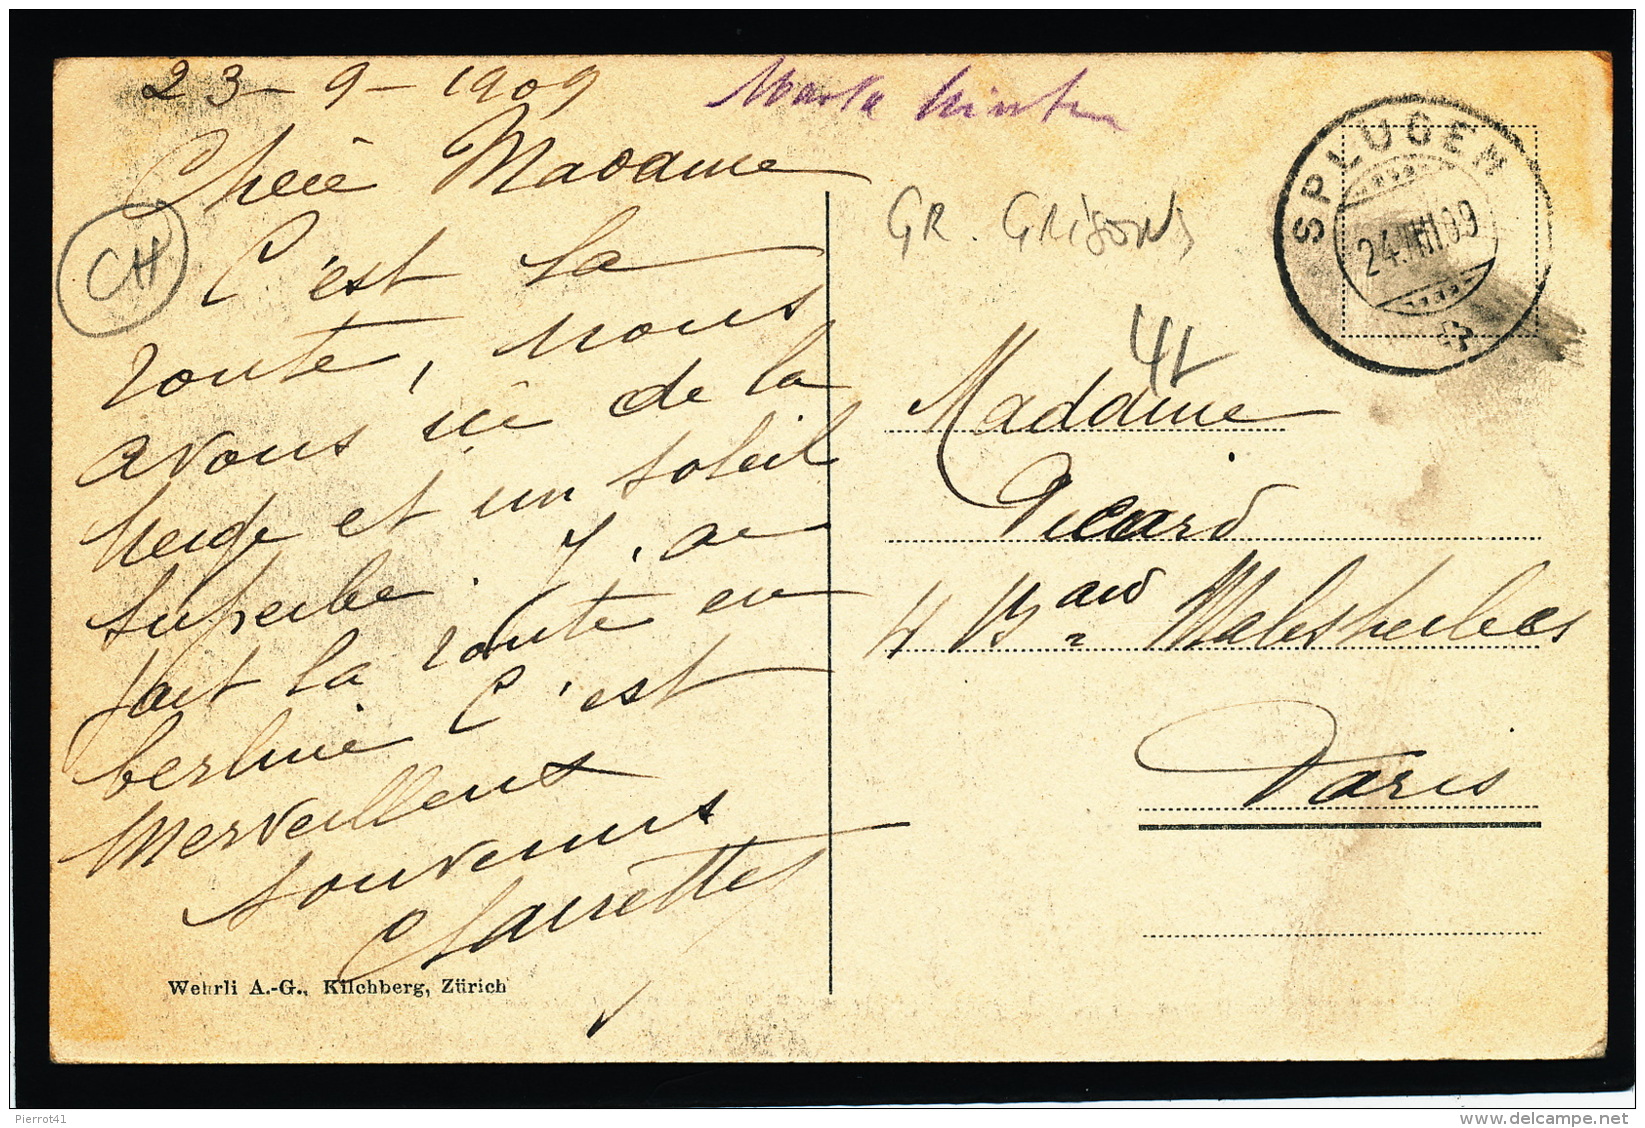 23-9-1909
Chère Madame
C'est la
route, nous
avons ici de la
neige et un soleil
superbe. J'ai
fait la route en
berline C'est
merveilleux
souvenirs
Clairette
Wehrli A.-G., Kilchberg, Zürich
CH
GR. GRISONS
SPLÜGEN
24. III 09
Madame
Picard
4 Bard Malesherbes
Paris
Pierrot41
www.delcampe.net